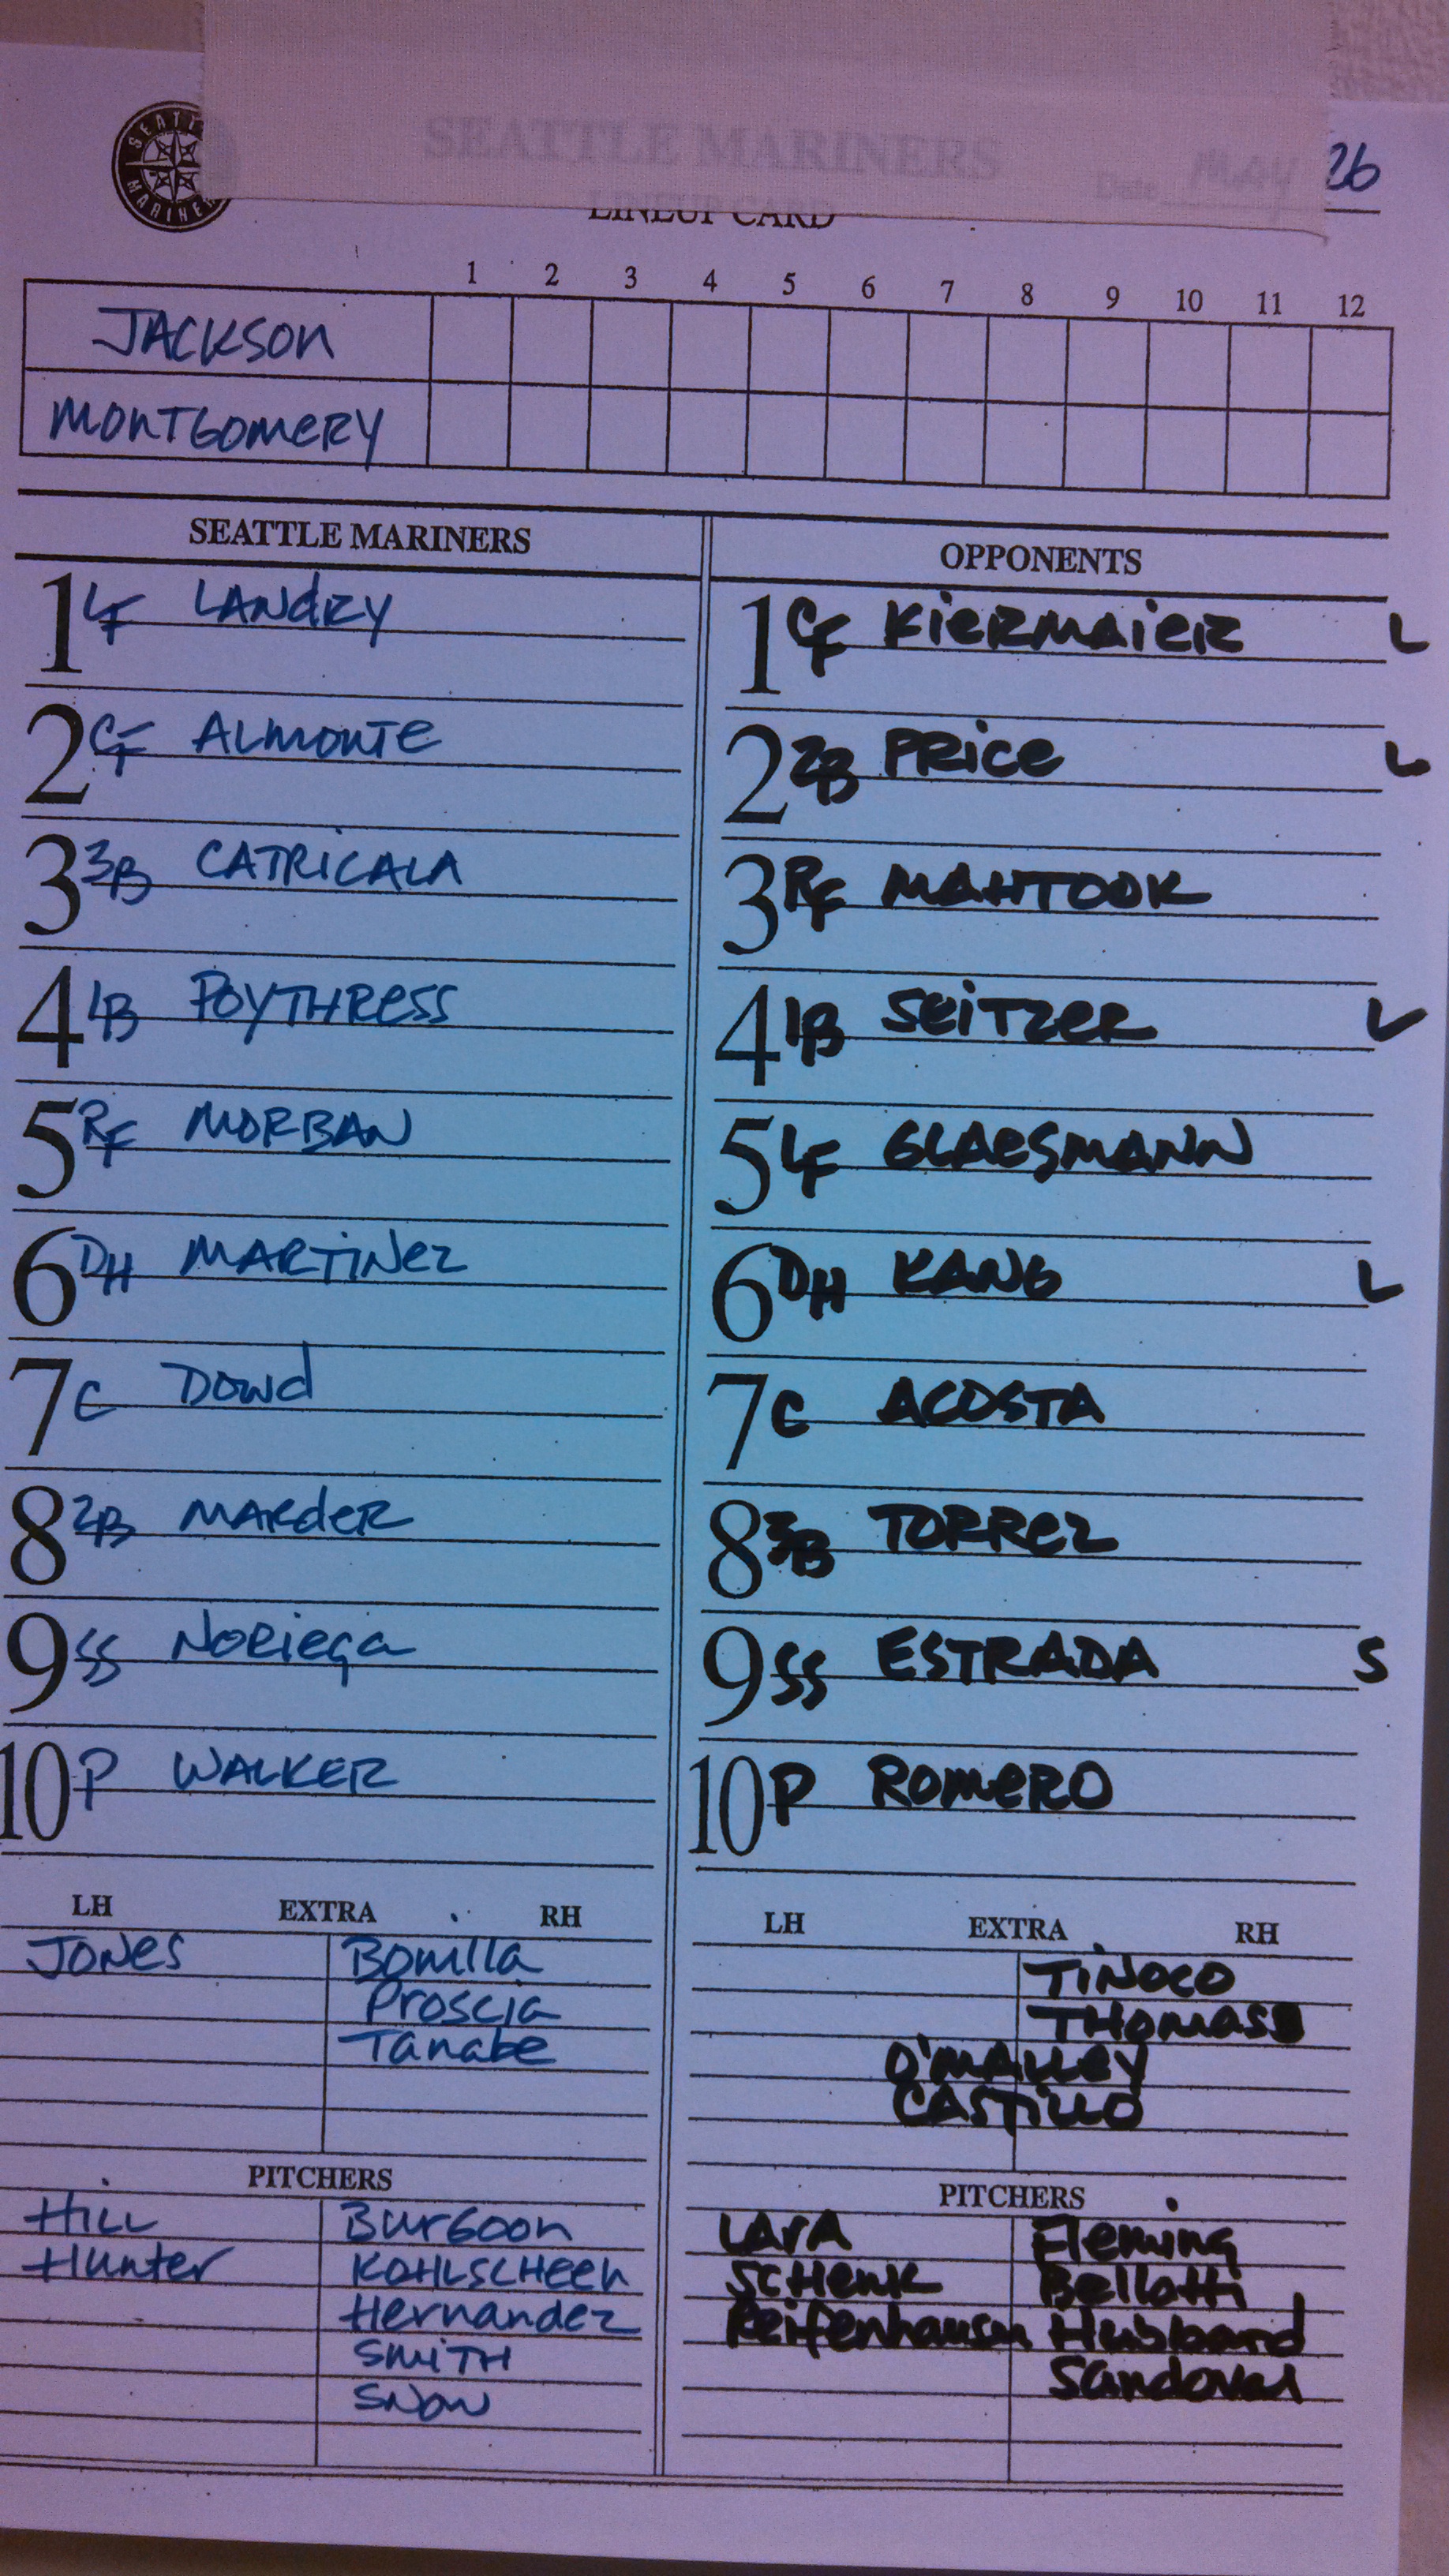 SEATTLE MARINERS
SEATTLE MARINERS
Date MAY 26
LINEUP CARD
1 2 3 4 5 6 7 8 9 10 11 12
JACKSON
MONTGOMERY
SEATTLE MARINERS OPPONENTS
1 LF LANDRY 1 CF KIERMAIER L
2 CF ALMONTE 2 2B PRICE L
3 3B CATRICALA 3 RF MAHTOOK
4 1B POYTHRESS 4 1B SEITZER L
5 RF MORBAN 5 LF GLAESMANN
6 DH MARTINEZ 6 DH KANG L
7 C DOWD 7 C ACOSTA
8 2B MARDER 8 3B TORREZ
9 SS NORIEGA 9 SS ESTRADA S
10 P WALKER 10 P ROMERO
LH EXTRA RH LH EXTRA RH
JONES Bonilla TINOCO
Proscia THOMAS
Tanabe O'MALLEY
CASTILLO
PITCHERS PITCHERS
HILL Burgoon LARA Fleming
Hunter KOHLSCHEEN SCHENK Bellatti
Hernandez Reifenhausen Hubbard
SMITH Sandoval
SNOW